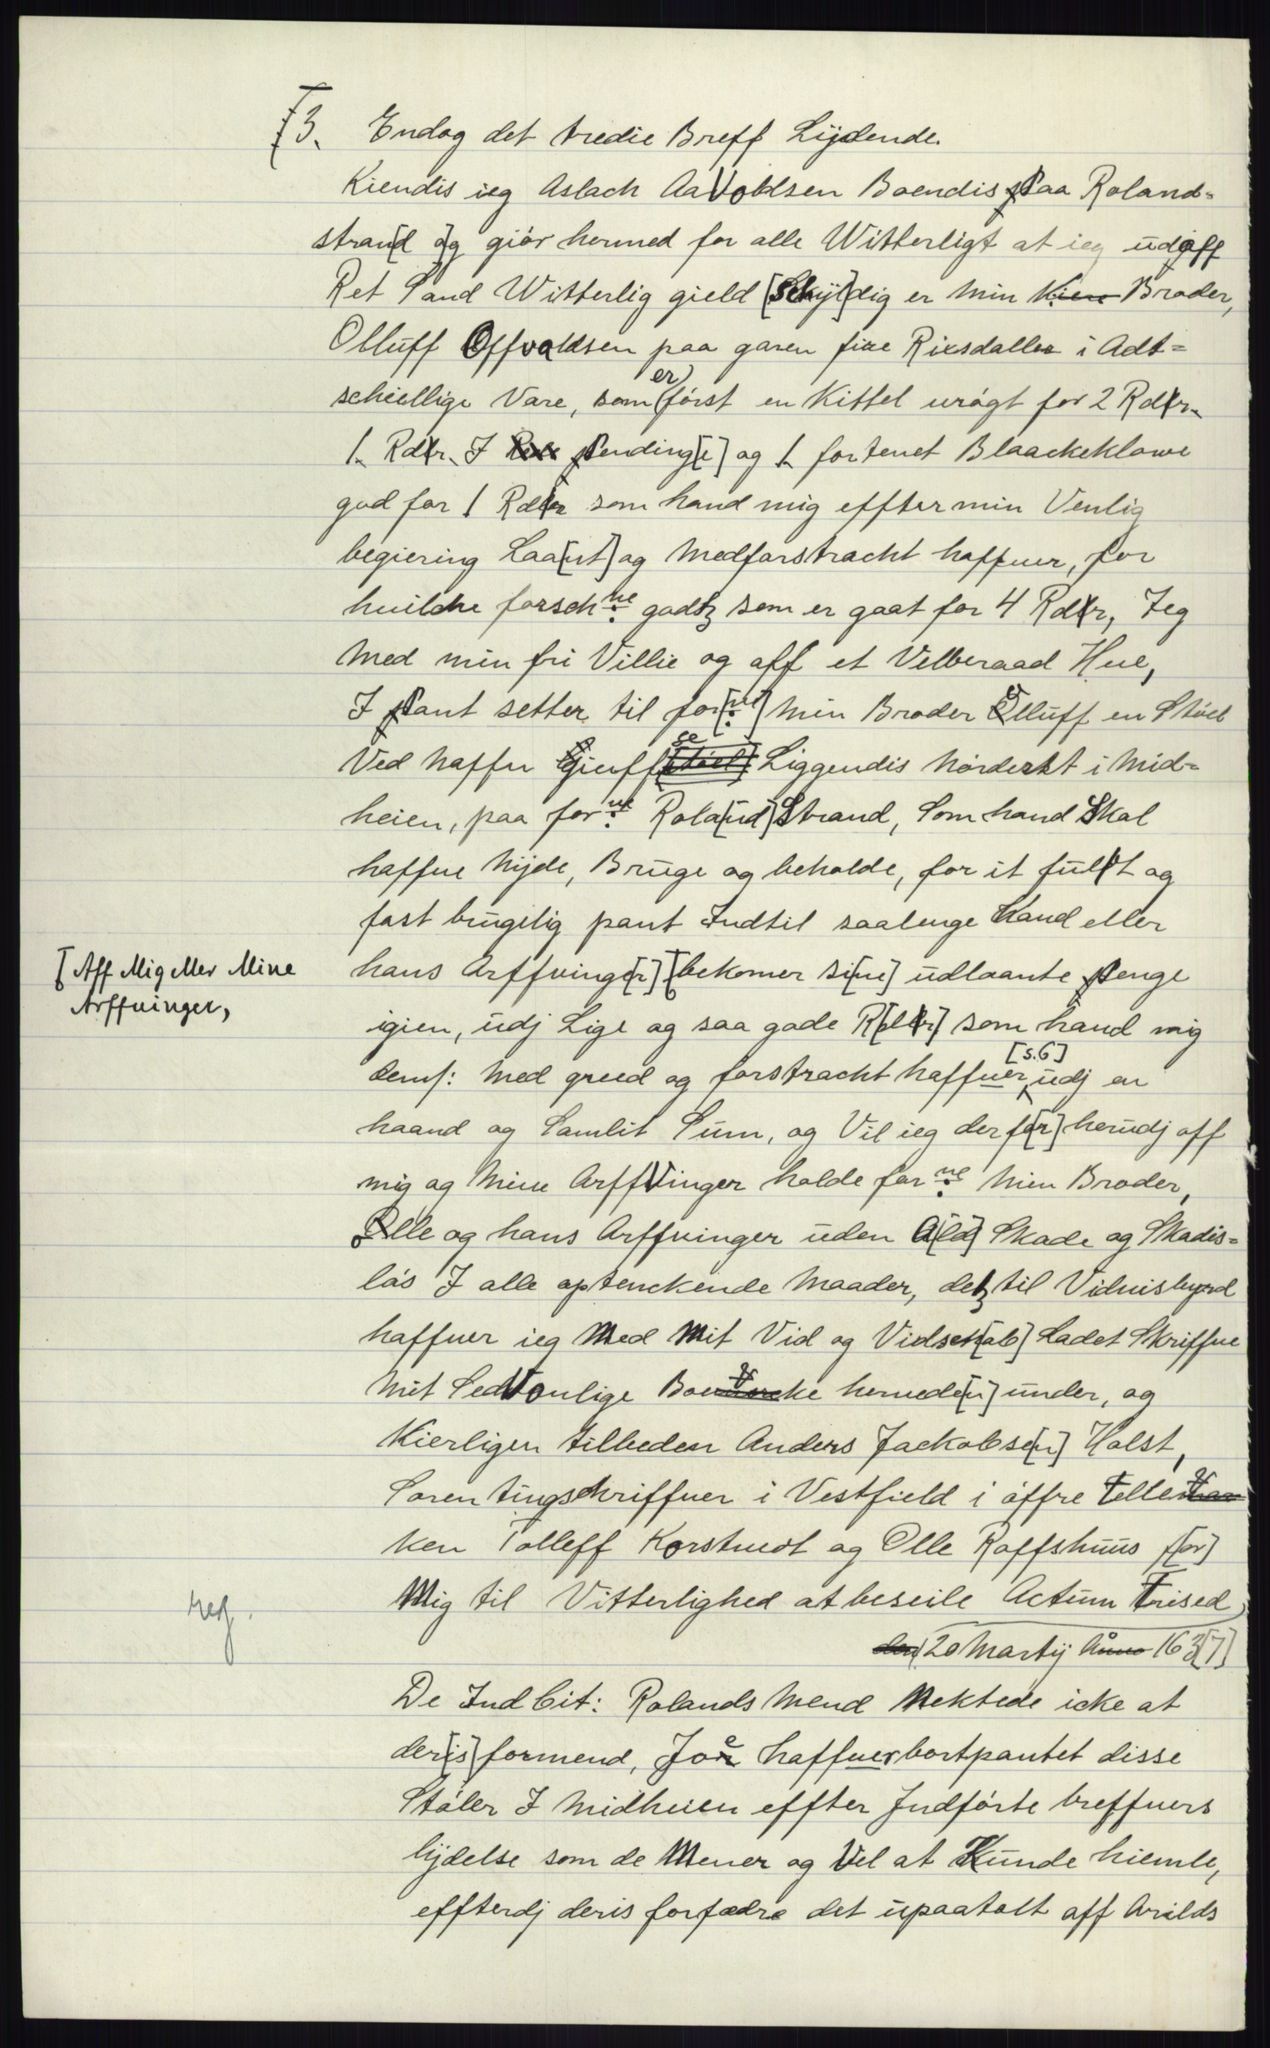 [3. Endog det tredie Breff Lijdende.
Kiendis ieg Aslach AaVoldsen Boendis Paa Roland-
stran[d o]g giör hermed for alle Witterligt at ieg udaff
Ret Sand Witterlig gield [Schyl]dig er min Kiere Broder,
Olluff Offvoldsen paa garen fire Rixsdaller i Adt-
schiellige Vare, som (er) först en Kittel urögt for 2 Rdlr.
1. Rdlr. I Pending[e] og 1. fortenet Blaackeklowe
god for 1 Rdlr som hand mig effter min Venlig
begiering Laa[nt] og Medforstracht haffuer, for
huilche forschne godtz som er gaat for 4 Rdlr, Jeg
Med min fri Villie og aff et Velberaad Hue,
I Pant setter til for[ne] Min Broder Olluff en Stöel
Ved Naffn Gieuffse [stöel] Liggendis Nörderst i Mid-
heien, paa forne Rola[nd]Strand, Som hand Skal
haffue Nijde, Bruge og beholde, for it fult og
fast brugelig pant Indtil saalenge Hand eller
[Aff Mig eller Mine
Arffuinger,
hans Arffvinge[r] [bekomer si[ne] udlaante Penge
igien, udj Lige og saa gode R[dlr] som hand mig
dem: Med greed og forstracht haffuer [s.6] udj en
haand og Samlit Sum, og Vil ieg derf[or] herudj aff
mig og Mine ArffVinger holde forne Min Broder,
Olle og hans Arffuinger uden A[ld] Skade og Skadis-
lös I alle optenckende Maader, detz til Vidnisbyrd
haffuer ieg Med Mit Vid og Vidsch[ab] Ladet Skriffue
Mit SedVonlige Boemercke hernede[n] under, og
Kierligen tilbeden Anders Jackobse[n] Holst,
Soren tingschriffuer i Vestfield i öffre Tellemar
ken Tolleff Korstuedt og Olle Roffshuus f[or]
Mig til Vitterlighed at beseile Actum Trised
ref.
den 20 Martij Anno 163[7]
De Ind Cit: Rolands Mend Nektede icke at
der[is] formend, Joe haffuer bortpantet disse
Stöler I Midheien effter Indförte breffuers
lijdelse som de Mener og Vel at Kunde hiemle,
effterdj deris forfædre det upaatalt aff Arilds